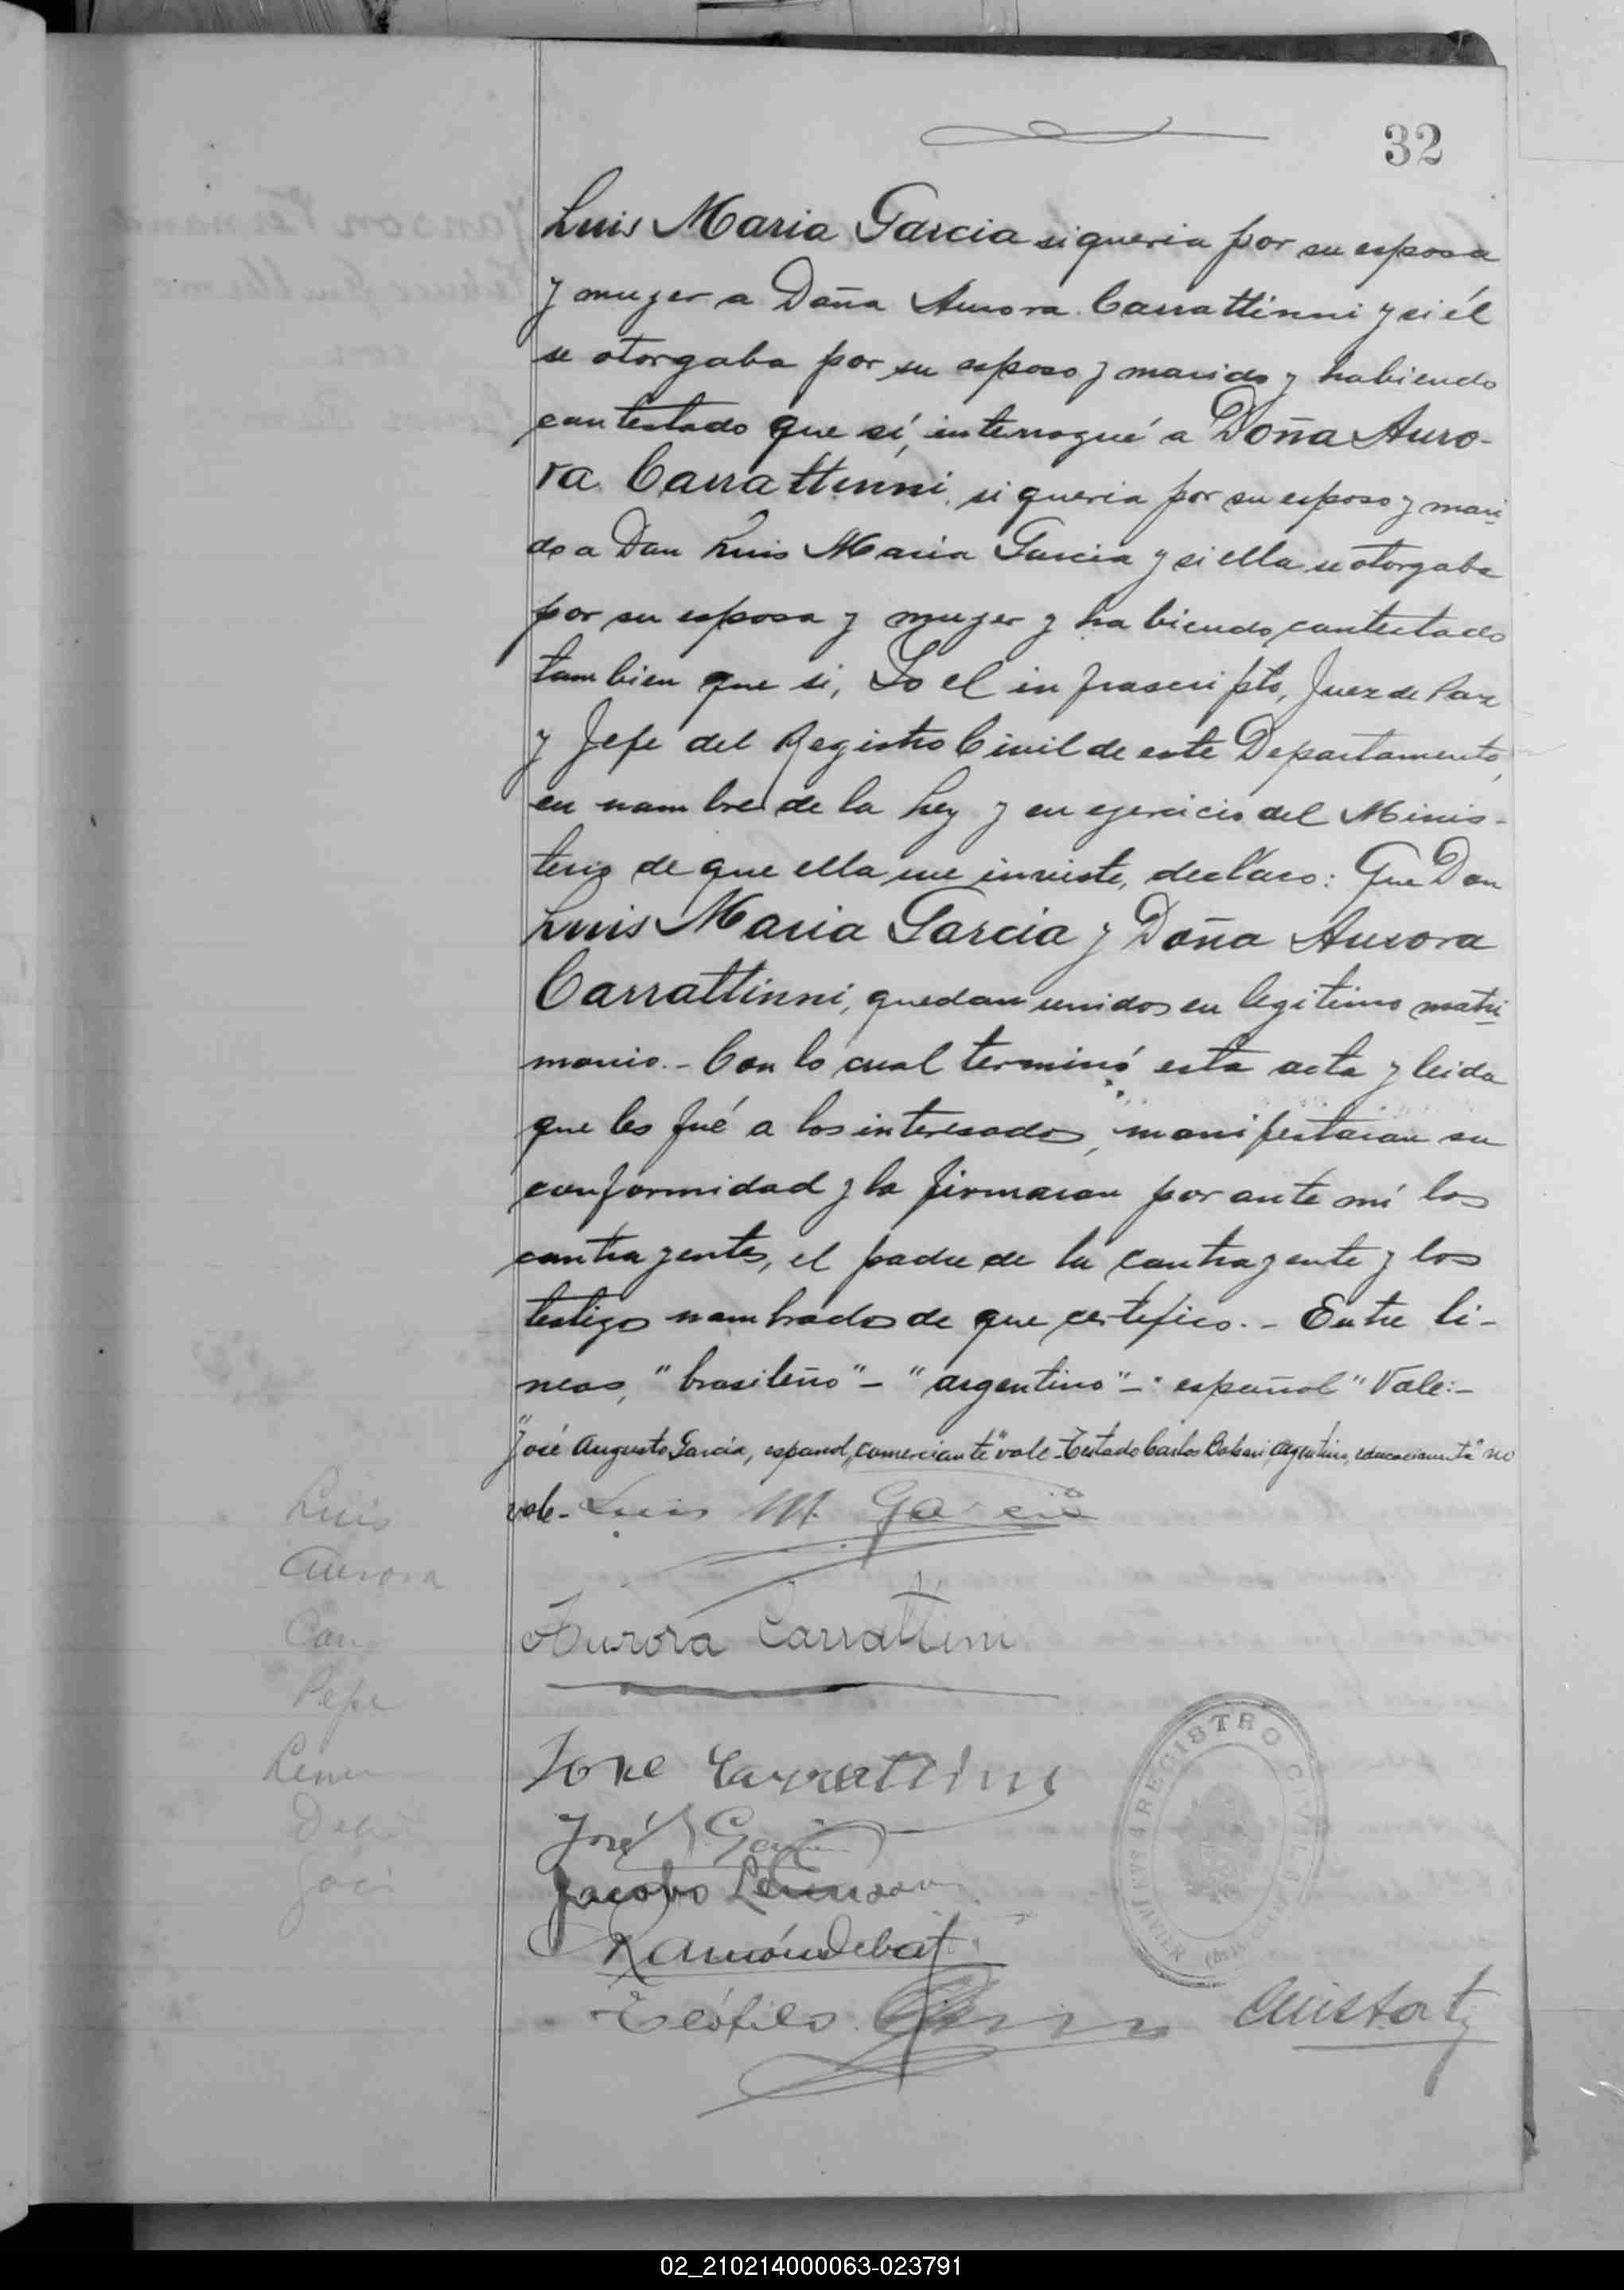 32
Luis Maria Garcia si queria por su esposa
y mujer a Doña Aurora Carrattinni y si él
se otorgaba por su esposo y marido y habiendo
contestado que sí, interrogué a Doña Auro-
ra Carrattinni si queria por su esposo y mari
do a Don Luis Maria Garcia y si ella se otorgaba
por su esposa y mujer y habiendo contestado
tambien que si, Yo el infrascripto, Juez de Paz
y Jefe del Registro Civil de este Departamento,
en nombre de la Ley y en ejercicio del Minis-
terio de que ella me inviste, declaro: Que Don
Luis Maria Garcia y Doña Aurora
Carrattinni, quedan unidos en legitimo matri
monio.- Con lo cual terminó esta acta y leida
que les fué a los interesados, manifestaron su
conformidad y la firmaron por ante mí los
contrayentes, el padre de la contrayente y los
testigos nombrados de que certifico.- Entre li-
neas, "brasileño"- "argentino"- "español" Vale:-
"José Augusto García, español, comerciante" vale- Testado Carlos argentino, educacionista" no
vale- Luis M. Garcia
Luis
Aurora
Aurora Carrattini
Pepe
Jose Carrattini
José Garcia
Jacobo
Ramón Debat
Teófilo
REGISTRO CIVIL
JAVIER
02_210214000063-023791